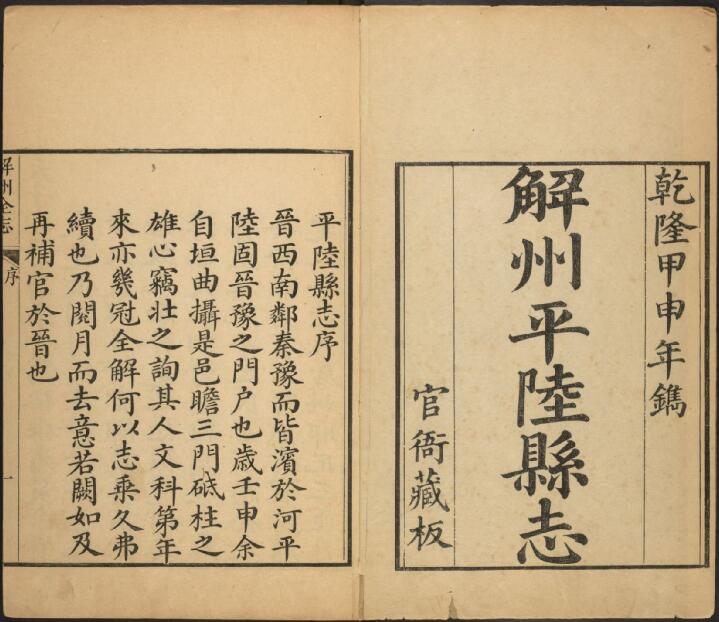 乾隆甲申年鐫
解州平陸縣志
官衙藏板
平陸縣志序
晉西南鄰秦豫而皆濱於河平
陸固晉豫之門户也歲壬申余
自垣曲攝是邑瞻三門砥柱之
雄心竊壯之詢其人文科第年
來亦幾冠全解何以志乘久弗
續也乃閱月而去意若闕如及
再補官於晉也
解州全志
序
一